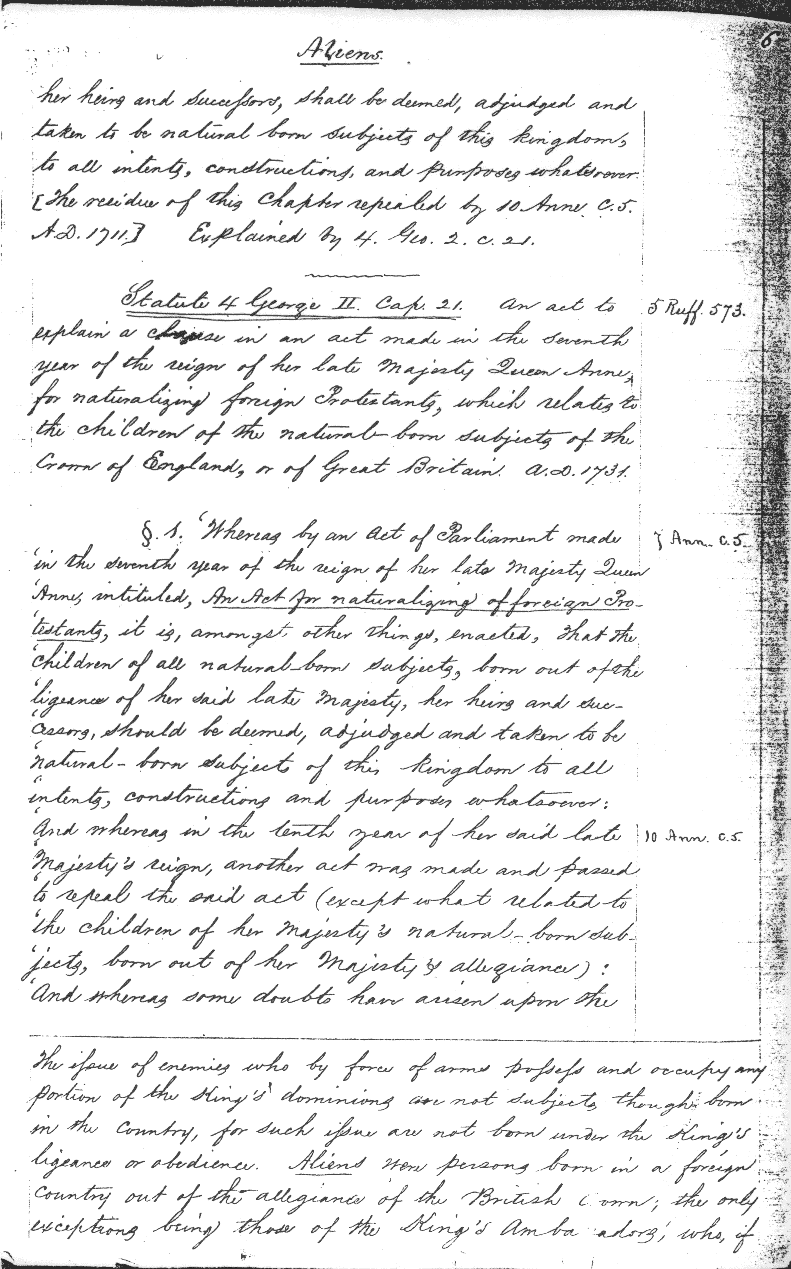 Aliens.
6
her heirs and successors, shall be deemed, adjudged and
taken to be natural born subjects of this kingdom,
to all intents, constructions, and purposes whatsoever.
[The residue of this Chapter repealed by 10 Anne. C.5.
A.D. 1711.] Explained by 4. Geo. 2. c. 21.
Statute 4 George II. Cap. 21. An act to
5 Ruff. 573.
explain a clause in an act made in the seventh
year of the reign of her late Majesty Queen Anne,
for naturalizing foreign Protestants, which relates to
the children of the natural-born subjects of the
Crown of England, or of Great Britain. A.D. 1731.
§. 1. 'Whereas by an Act of Parliament made
7 Ann. c.5.
'in the seventh year of the reign of her late Majesty Queen
'Anne, intituled, An Act for naturalizing of foreign Pro-
'testants, it is, amongst other things, enacted, that the
'children of all natural-born subjects, born out of the
'ligeance of her said late Majesty, her heirs and suc-
'cessors, should be deemed, adjudged and taken to be
'natural-born subjects of this kingdom to all
'intents, constructions and purposes whatsoever:
'And whereas in the tenth year of her said late
10 Ann. c.5.
'Majesty's reign, another act was made and passed
'to repeal the said act (except what related to
'the children of her Majesty's natural-born sub-
'jects, born out of her Majesty's allegiance):
'And whereas some doubts have arisen upon the
The issue of enemies who by force of arms possess and occupy any
portion of the King's dominions are not subjects though born
in the country, for such issue are not born under the King's
ligeance or obedience. Aliens were persons born in a foreign
country out of the allegiance of the British C own; the only
exceptions being those of the King's Amba adors, who, if